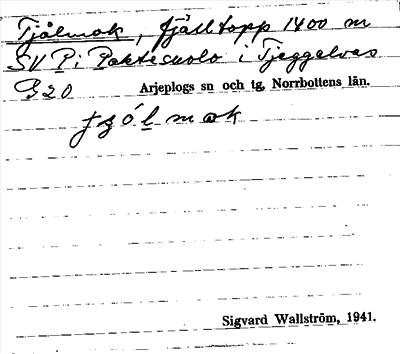 Tjålmok, fjälltopp 1400 m
SV P; Paktesuolo i Tjeggelvas
G20 Arjeplogs sn och tg, Norrbottens län.
Sigvard Wallström, 1941.